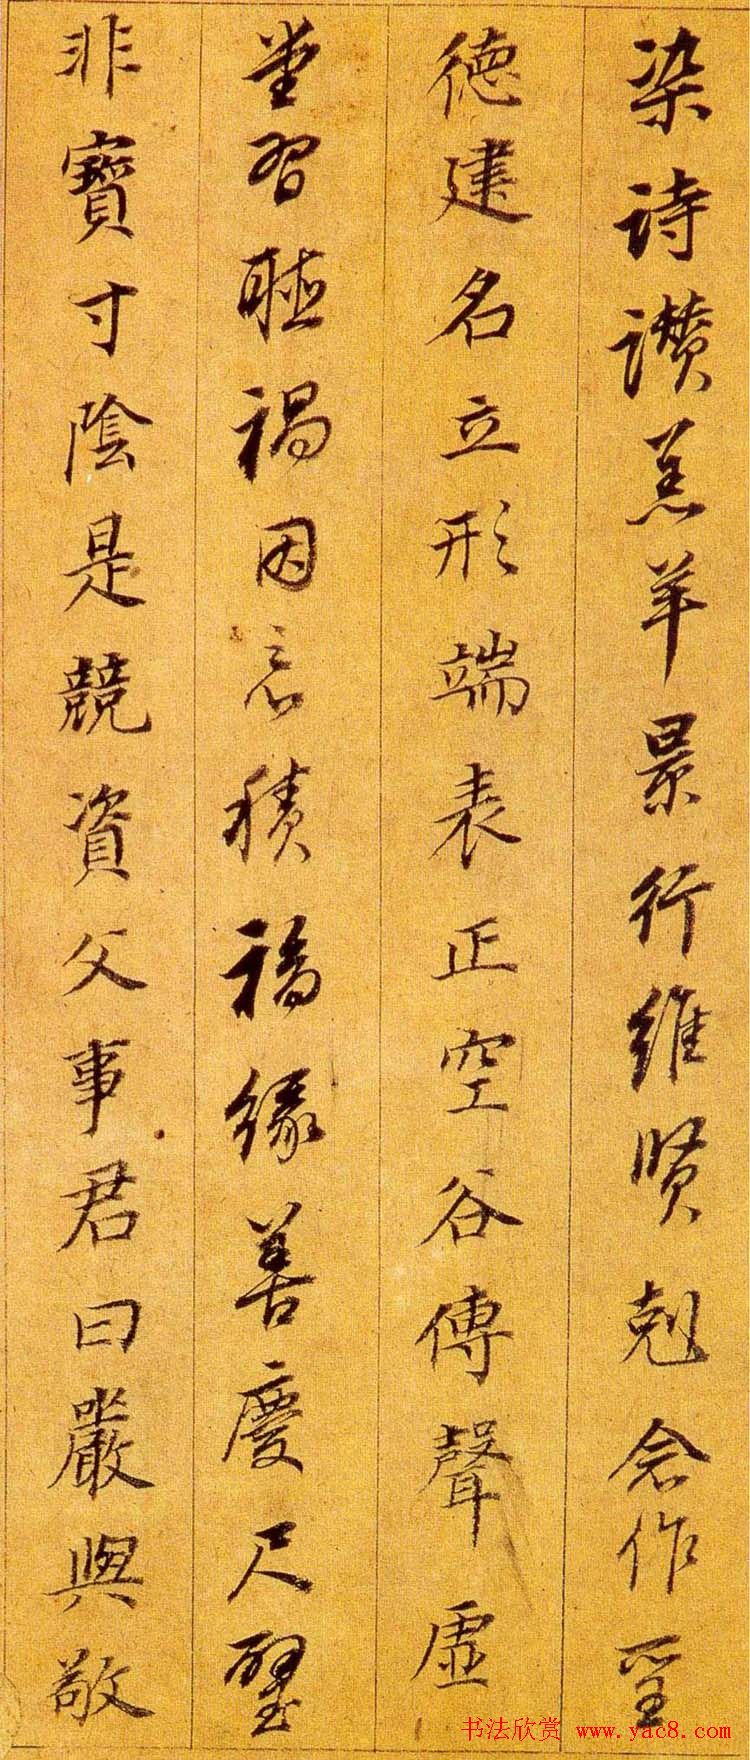 染诗讃羔羊景行維贤剋念作聖
德建名立形端表正空谷傳聲虛
堂習聴禍因惡積福緣善慶尺璧
非寶寸陰是競資父事君曰嚴與敬
书法欣赏 www.yac8.com